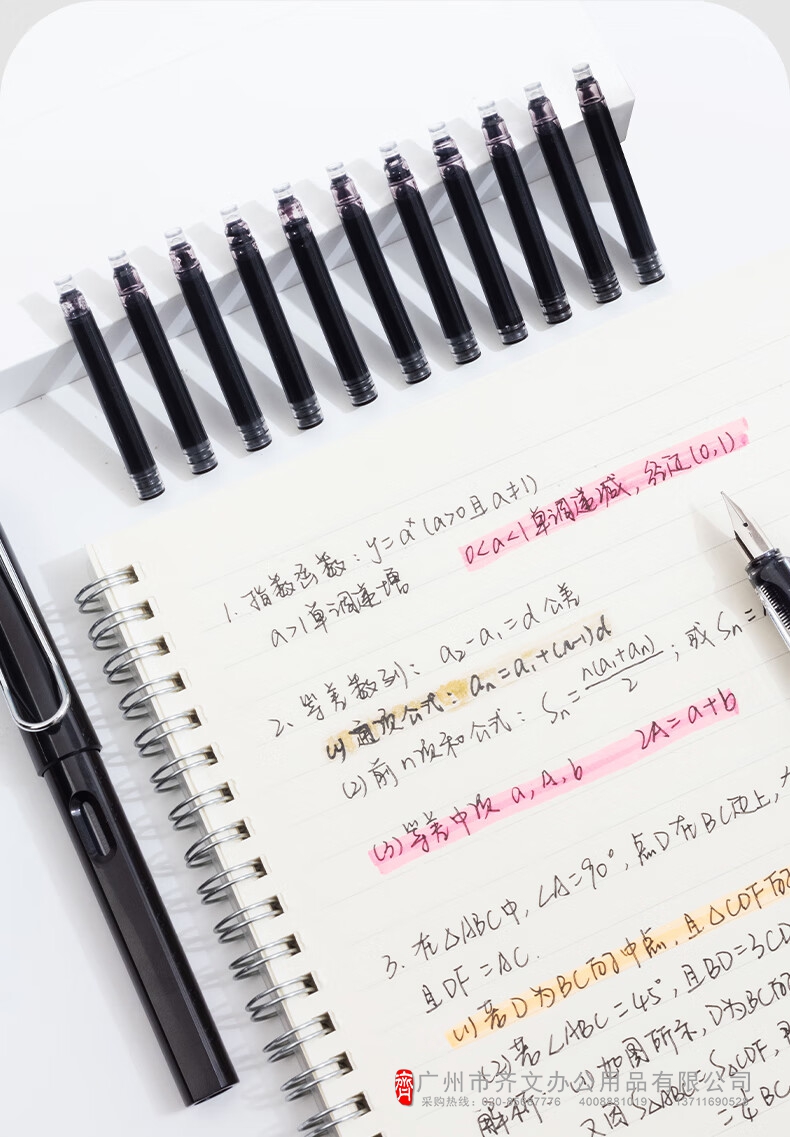 1. 指数函数：y=aˣ (a>0且a≠1)
a>1单调递增
0<a<1单调递减，经过(0,1)
2、等差数列：a₂-a₁=d 公差
(1)通项公式：aₙ=a₁+(n-1)d
(2)前n项和公式：Sₙ=n(a₁+aₙ)/2；或Sₙ=
(3)等差中项 a,A,b 2A=a+b
3. 在△ABC中，∠A=90°，点D在BC边上，
且DF=AC.
(1)若D为BC的中点，且△CDF的
(2)若∠ABC=45°，且BD=3CD
解析 如图所示，D为BC的
又因S△ABC=S△CDF，
齊 广州市齐文办公用品有限公司
采购热线：020-85667776 4008881019 13711690523